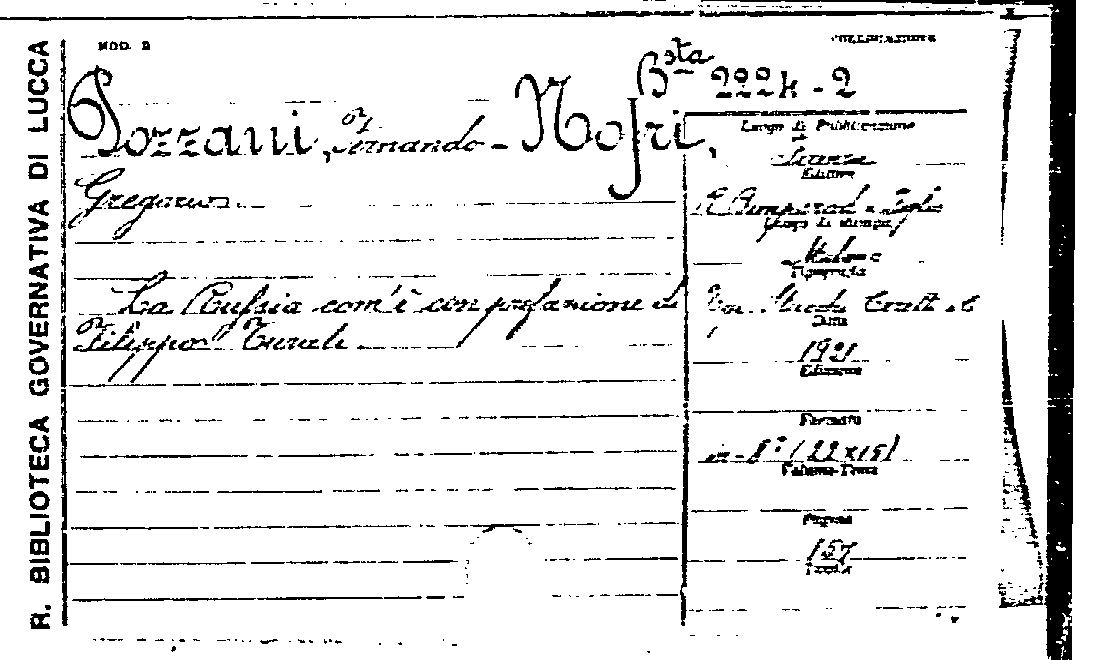 R. BIBLIOTECA GOVERNATIVA DI LUCCA
MOD. 2
COLLOCAZIONE
Bsta 2224-2
Pozzani, Fernando - Nofri,
Gregorio
La Russia com'è con prefazione di
Filippo Turati
Luogo di Pubblicazione
Firenze
Editore
R. Bemporad e Figlio
Luogo di stampa
Milano
Tipografia
Tip. Stucchi Ceretti e C
Data
1921
Edizione
Formato
in-8° (22x15)
Volume-Tomo
Pagine
157
Tavole